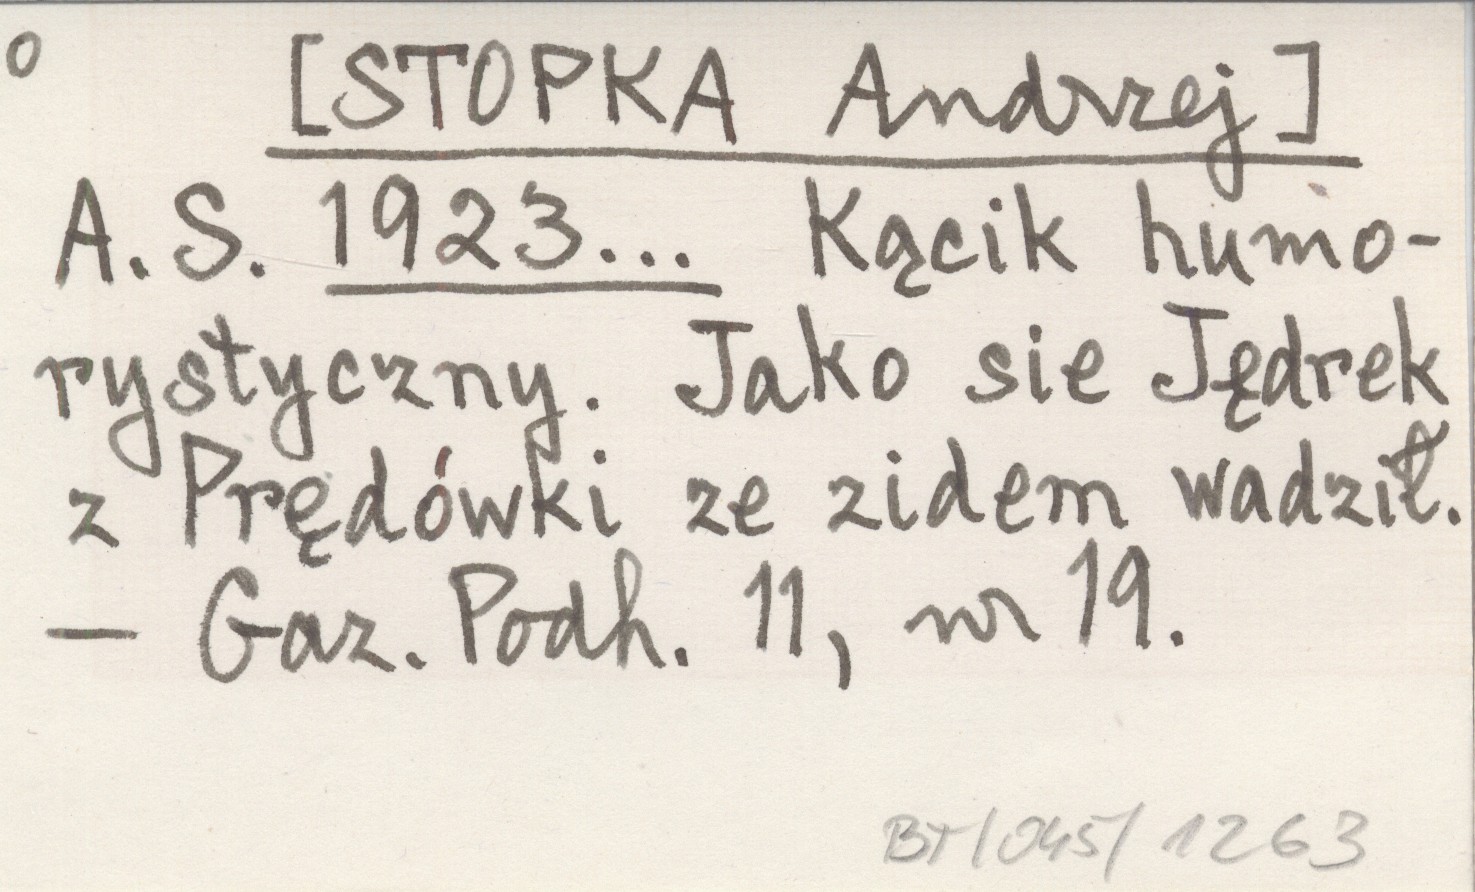 o [STOPKA Andrzej]
A. S. 1923... Kącik humo-
rystyczny. Jako sie Jędrek
z Prędówki ze zidem wadził.
— Gaz. Podh. 11, nr 19.
BT/045/1263